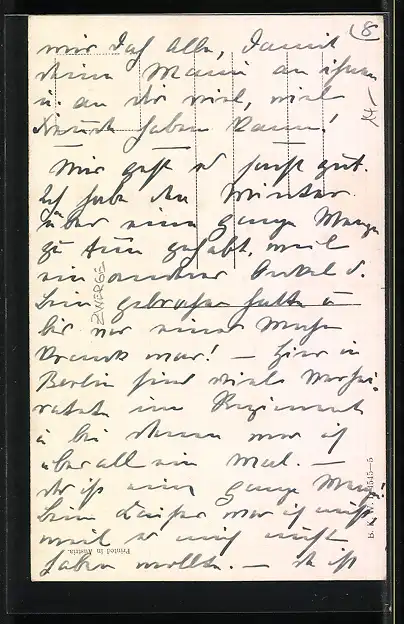 mir Ihr alle, damit
deine Mami an ihnen
u. an dir viel, viel
Freude haben kann!
Mir geht es sonst gut.
Ich habe den Winter
über eine ganze Menge
zu tun gehabt, weil
ein anderer Onkel d.
Bein gebrochen hatte u
bis vor einer Woche
krank war! – Hier in
Berlin sind viele Verhei-
ratete im Regiment
u bei denen war ich
überall ein Mal. –
Es ist eine ganze Menge!
Beim Kaiser war ich nicht
weil er mich nicht
haben wollte. – Es ist
8
ZWERGE
Printed in Austria.